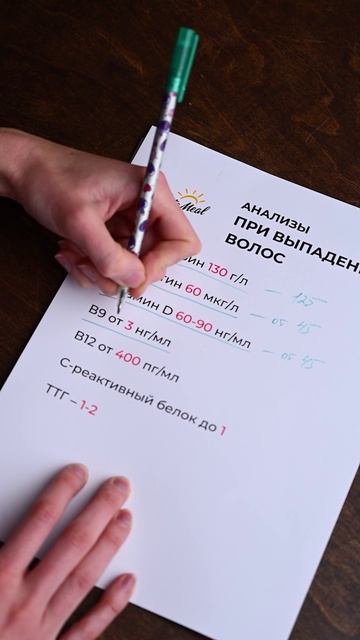 Meal
АНАЛИЗЫ
ПРИ ВЫПАДЕН
ВОЛОС
ин 130 г/л — 125
тин 60 мкг/л — от 45
мин D 60-90 нг/мл — от 45
В9 от 3 нг/мл
В12 от 400 пг/мл
С-реактивный белок до 1
ТТГ – 1-2